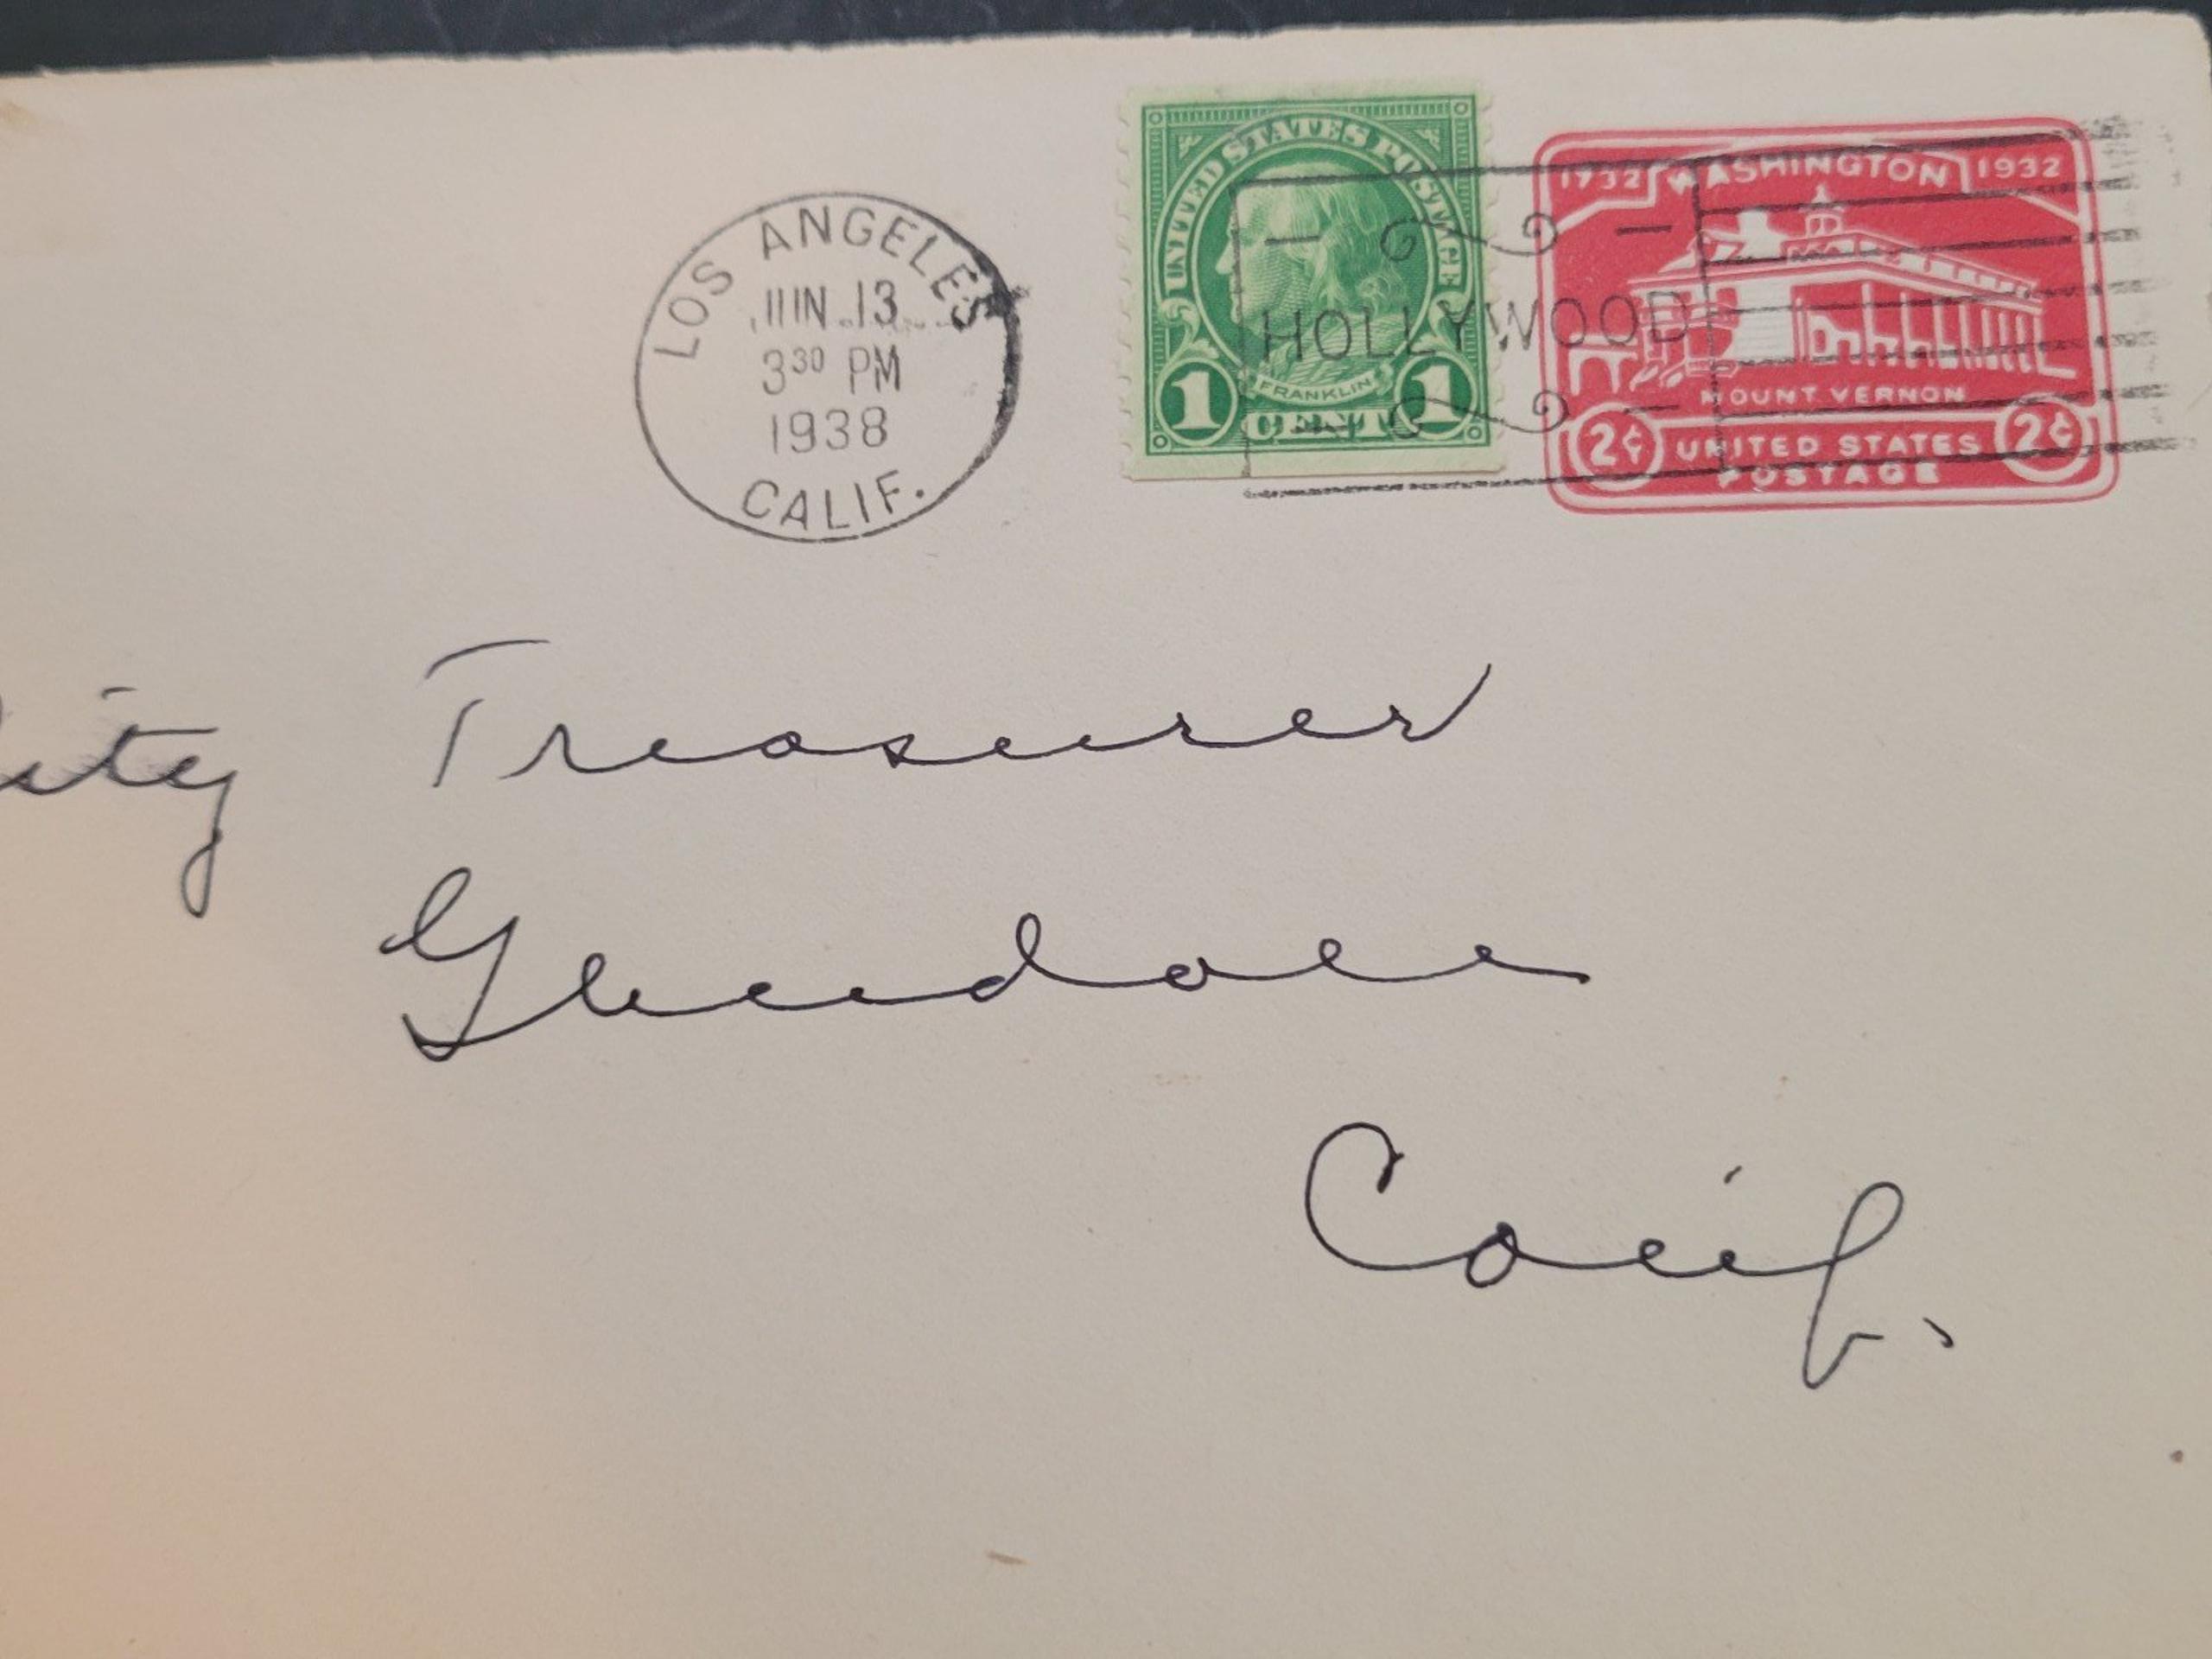 LOS ANGELES
JUN 13
3 30 PM
1938
CALIF.
UNITED STATES POSTAGE
FRANKLIN
1 CENT 1
HOLLYWOOD
1732 WASHINGTON 1932
MOUNT VERNON
2¢ UNITED STATES 2¢
POSTAGE
ity Treasurer
Glendora
Calif.